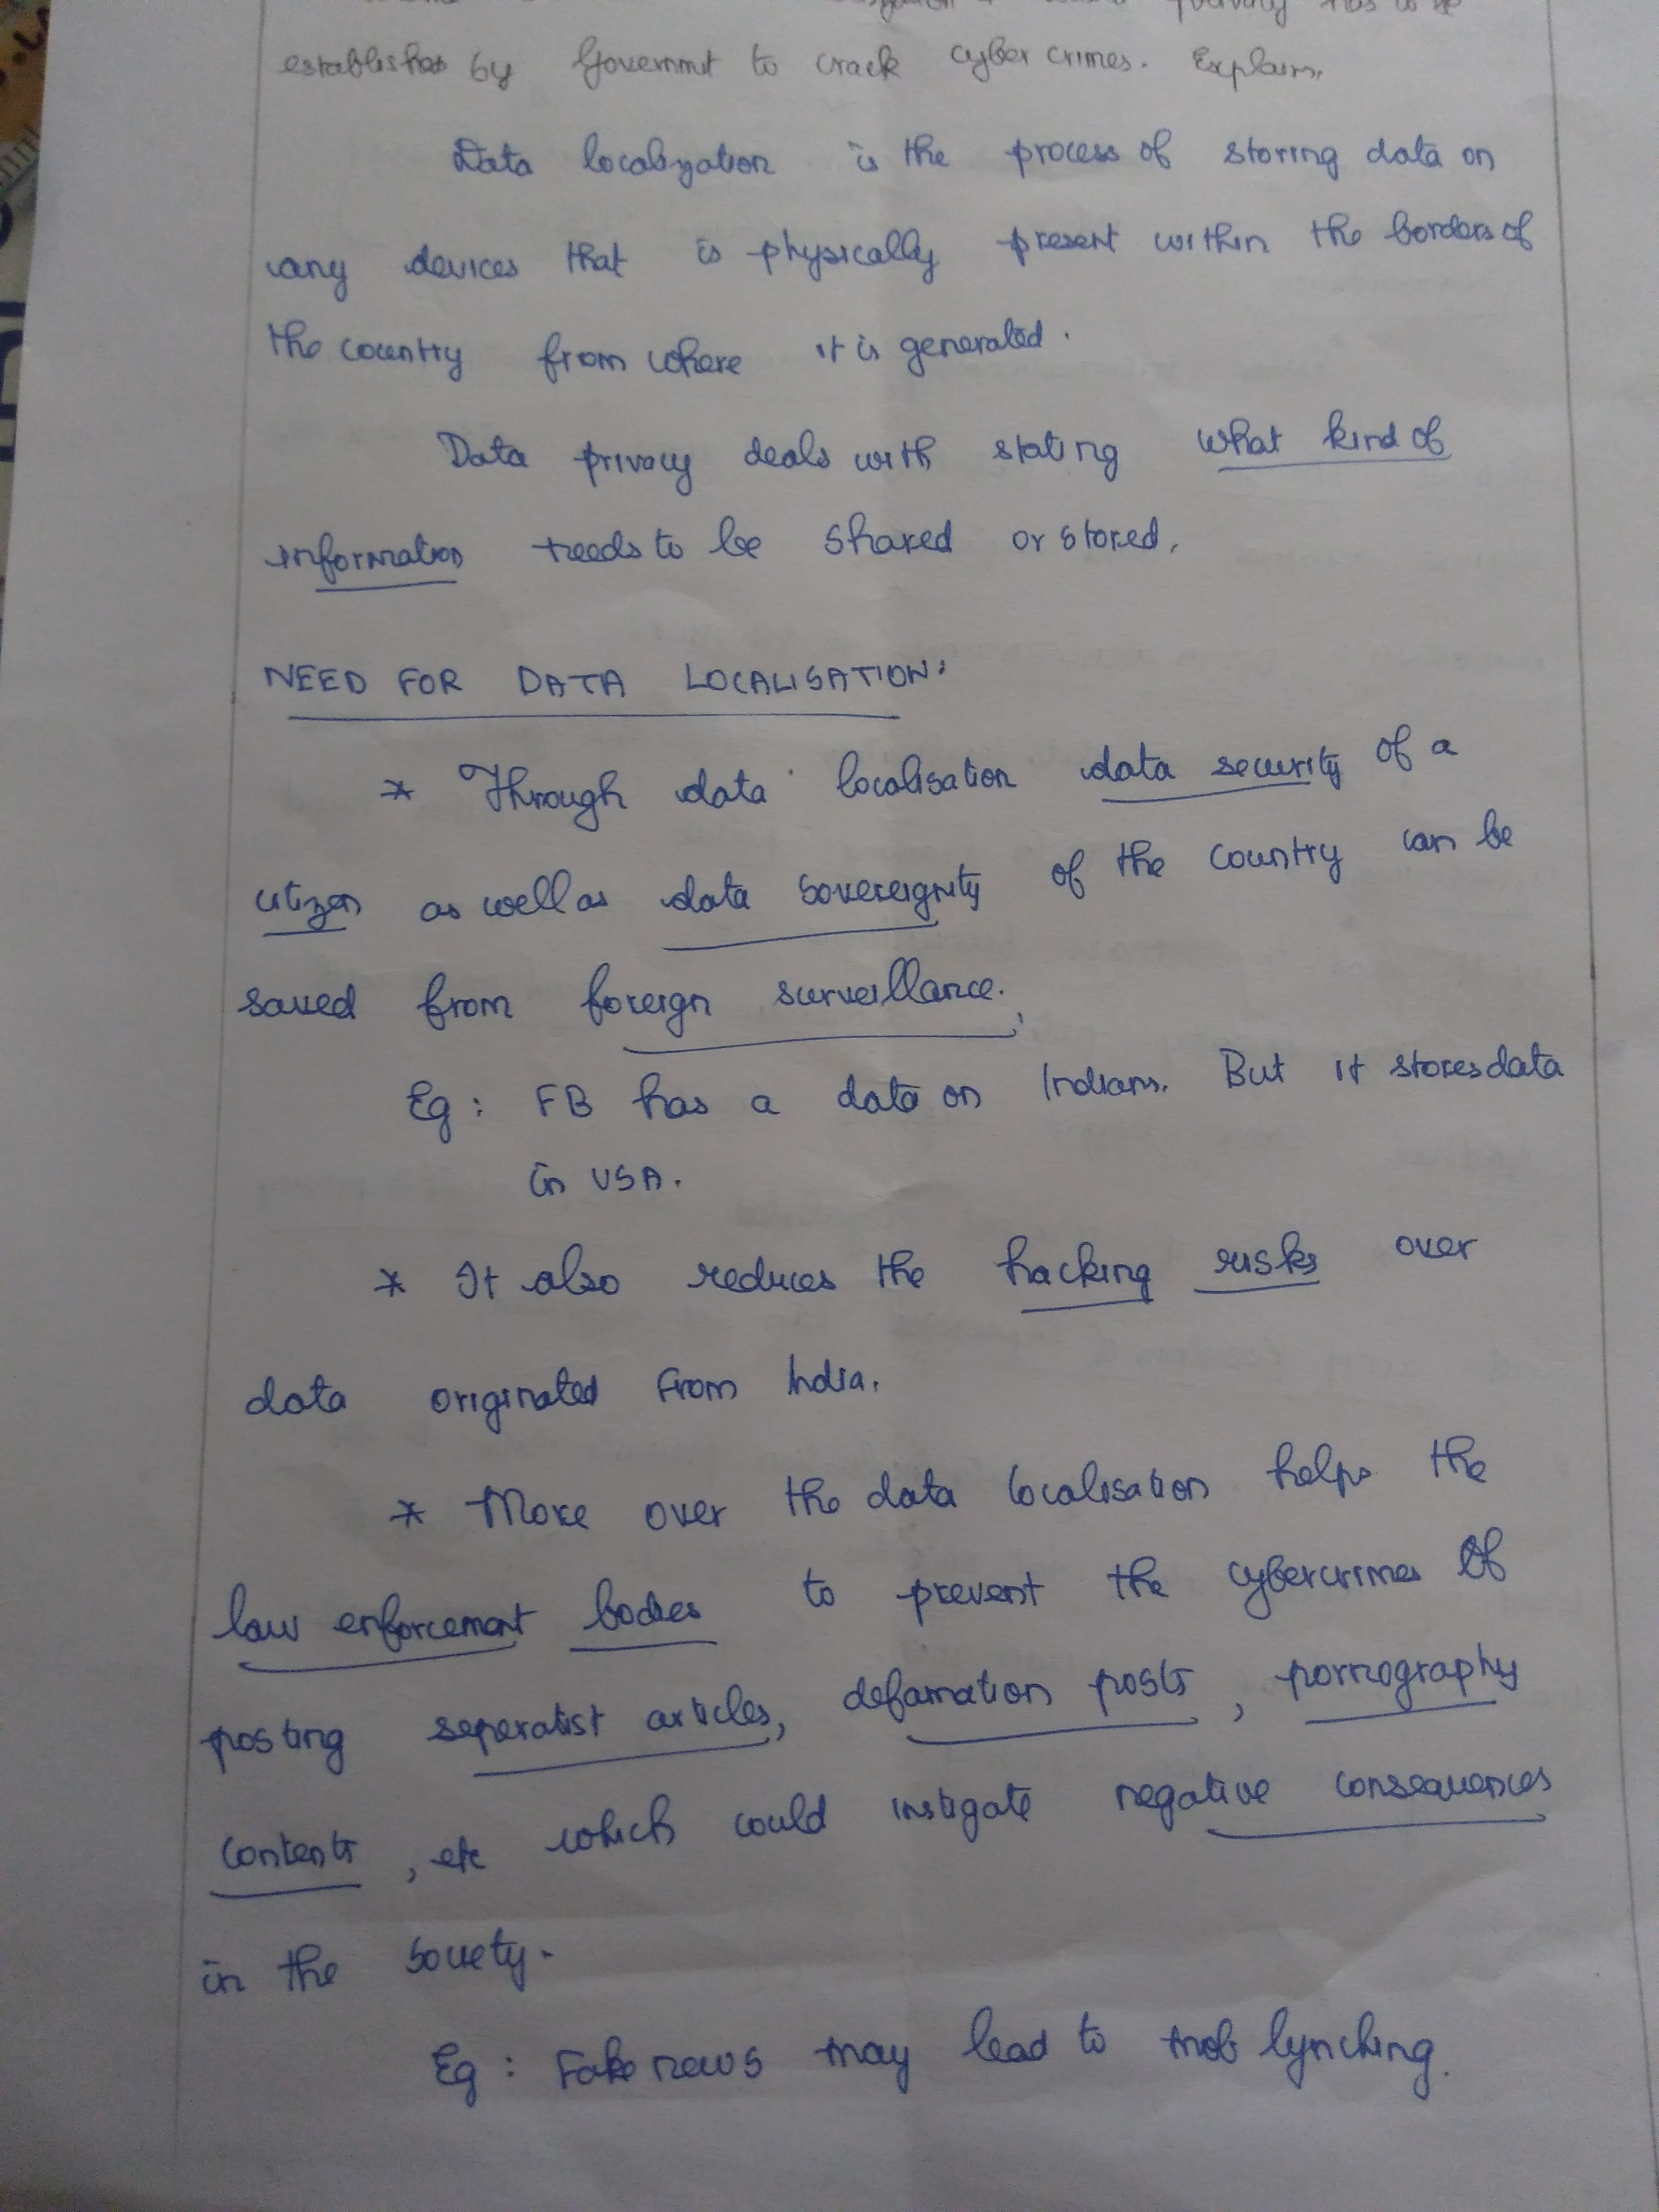 privacy has to be
established by Governmt to crack cyber crimes. Explain.
Data localization is the process of storing data on
any devices that is physically present within the borders of
the country from where it is generated.
Data privacy deals with stating what kind of
information needs to be shared or stored.
NEED FOR DATA LOCALISATION:
* Through data localisation data security of a
citizen as well as data sovereignity of the country can be
saved from foreign surveillance.
Eg: FB has a data on Indians. But it stores data
in USA.
* It also reduces the hacking risks over
data originated from India.
* More over the data localisation helps the
law enforcement bodies to prevent the cybercrimes of
posting seperatist articles, defamation posts, pornography
contents, etc which could instigate negative consequences
in the society.
Eg: Fake news may lead to mob lynching.